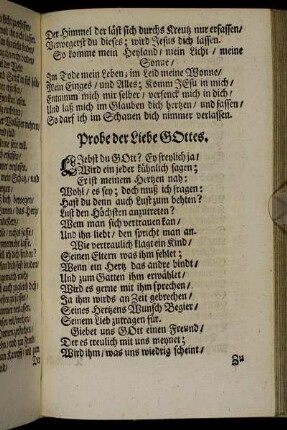 Der Himmel der läst sich durchs Kreutz nur erfassen/
Verwegerst du dieses; wird JEsus dich lassen.
So komme mein Heyland/ mein Licht/ meine
Sonne/
Im Tode mein Leben/ im Leid meine Wonne/
Mein Enges/ und Alles; Komm JEsu in mich/
Entnimm mich mir selber/ versenck mich in dich/
Und laß mich im Glauben dich hertzen/ und fassen/
So darf ich im Schauen dich nimmer verlassen.
Probe der Liebe GOttes.
LIebst du GOtt? Ey freylich ja/
Wird ein jeder kühnlich sagen;
Er ist meinem Hertzen nah:
Wohl/ es sey; doch muß ich fragen:
Hast du denn auch Lust zum bethen?
Lust den Höchsten anzutreten?
Wem man sich vertrauen kan/
Und ihn liebt/ den spricht man an.
Wie vertraulich klagt ein Kind/
Seinen Eltern was ihm fehlet;
Wenn ein Hertz das andre bindt/
Und zum Gatten ihm erwählet/
Wird es gerne mit ihm sprechen/
Ja ihm wirds an Zeit gebrechen/
Seines Hertzens Wunsch Begier/
Seinem Lieb zutragen für.
Giebet uns GOtt einen Freund/
Der es treulich mit uns meynet;
Wird ihm/ was uns wiedrig scheint/
Zu